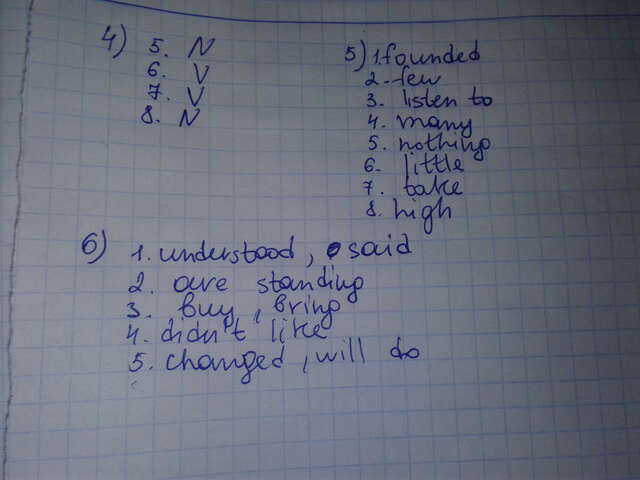 4) 5. N
6. V
7. V
8. N
5) 1. founded
2. few
3. listen to
4. many
5. nothing
6. little
7. take
8. high
6) 1. understood, said
2. are standing
3. buy, bring
4. didn't like
5. changed, will do